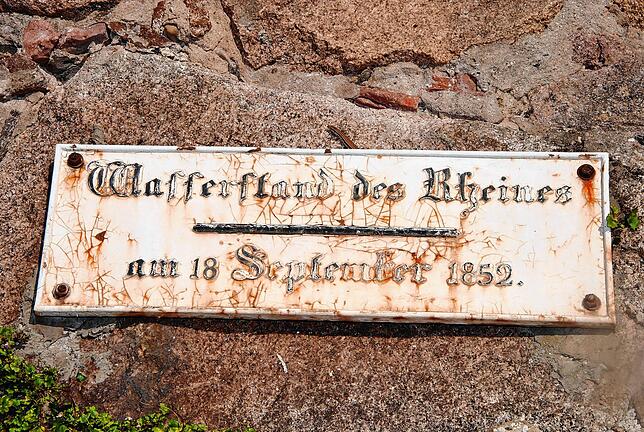 Waſſerſtand des Rheines
am 18 September 1852.